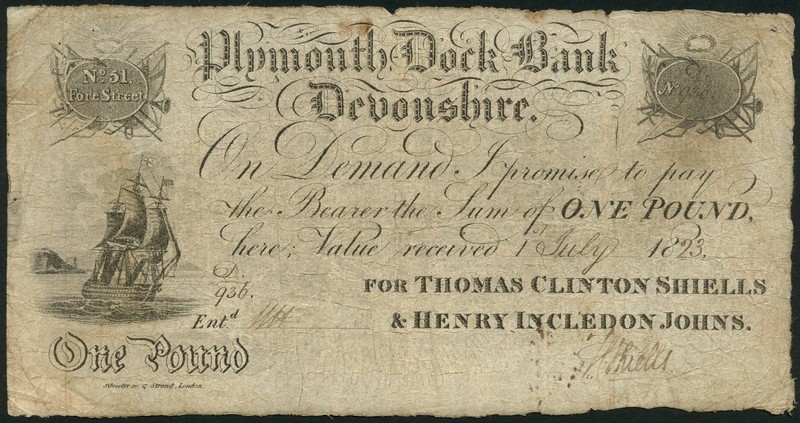 Plymouth Dock Bank
No. 51,
Fore Street
No.
Devonshire.
On Demand I promise to pay
the Bearer the Sum of ONE POUND,
here; Value received 1st July 1823.
D.
936.
FOR THOMAS CLINTON SHIELLS
Ent.d
& HENRY INCLEDON JOHNS.
One Pound
T Shiells.
Silvester sc. 27 Strand, London.